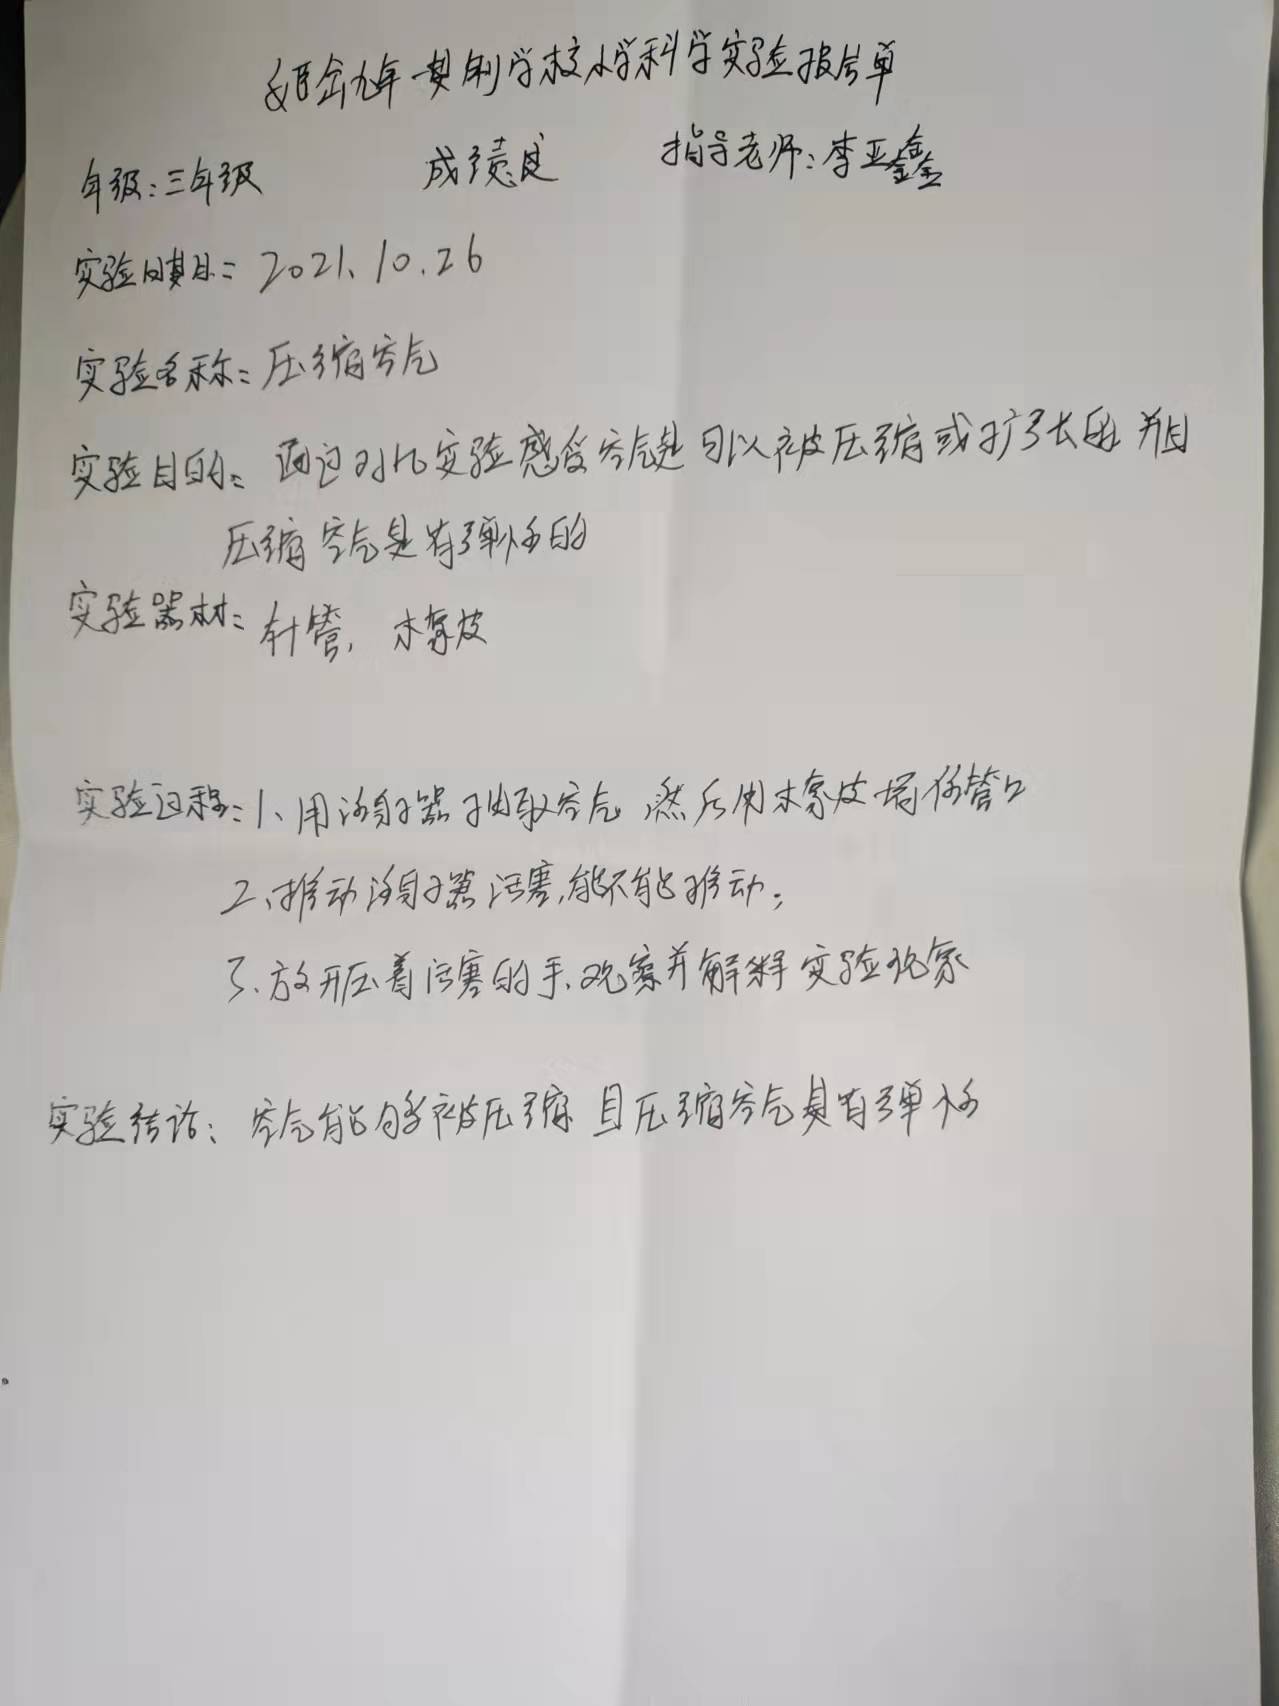 姬岔九年一贯制学校小学科学实验报告单
年级:三年级 成绩: 指导老师:李亚鑫
实验日期: 2021.10.26
实验名称: 压缩空气
实验目的: 通过对比实验感受空气是可以被压缩或扩张的 并且
压缩空气是有弹性的
实验器材: 针管, 橡皮
实验过程: 1、用注射器抽取空气 然后用橡皮堵住管口
2、推动注射器活塞,能不能推动;
3、放开压着活塞的手、观察并解释实验现象
实验结论: 空气能够被压缩 且压缩空气具有弹性